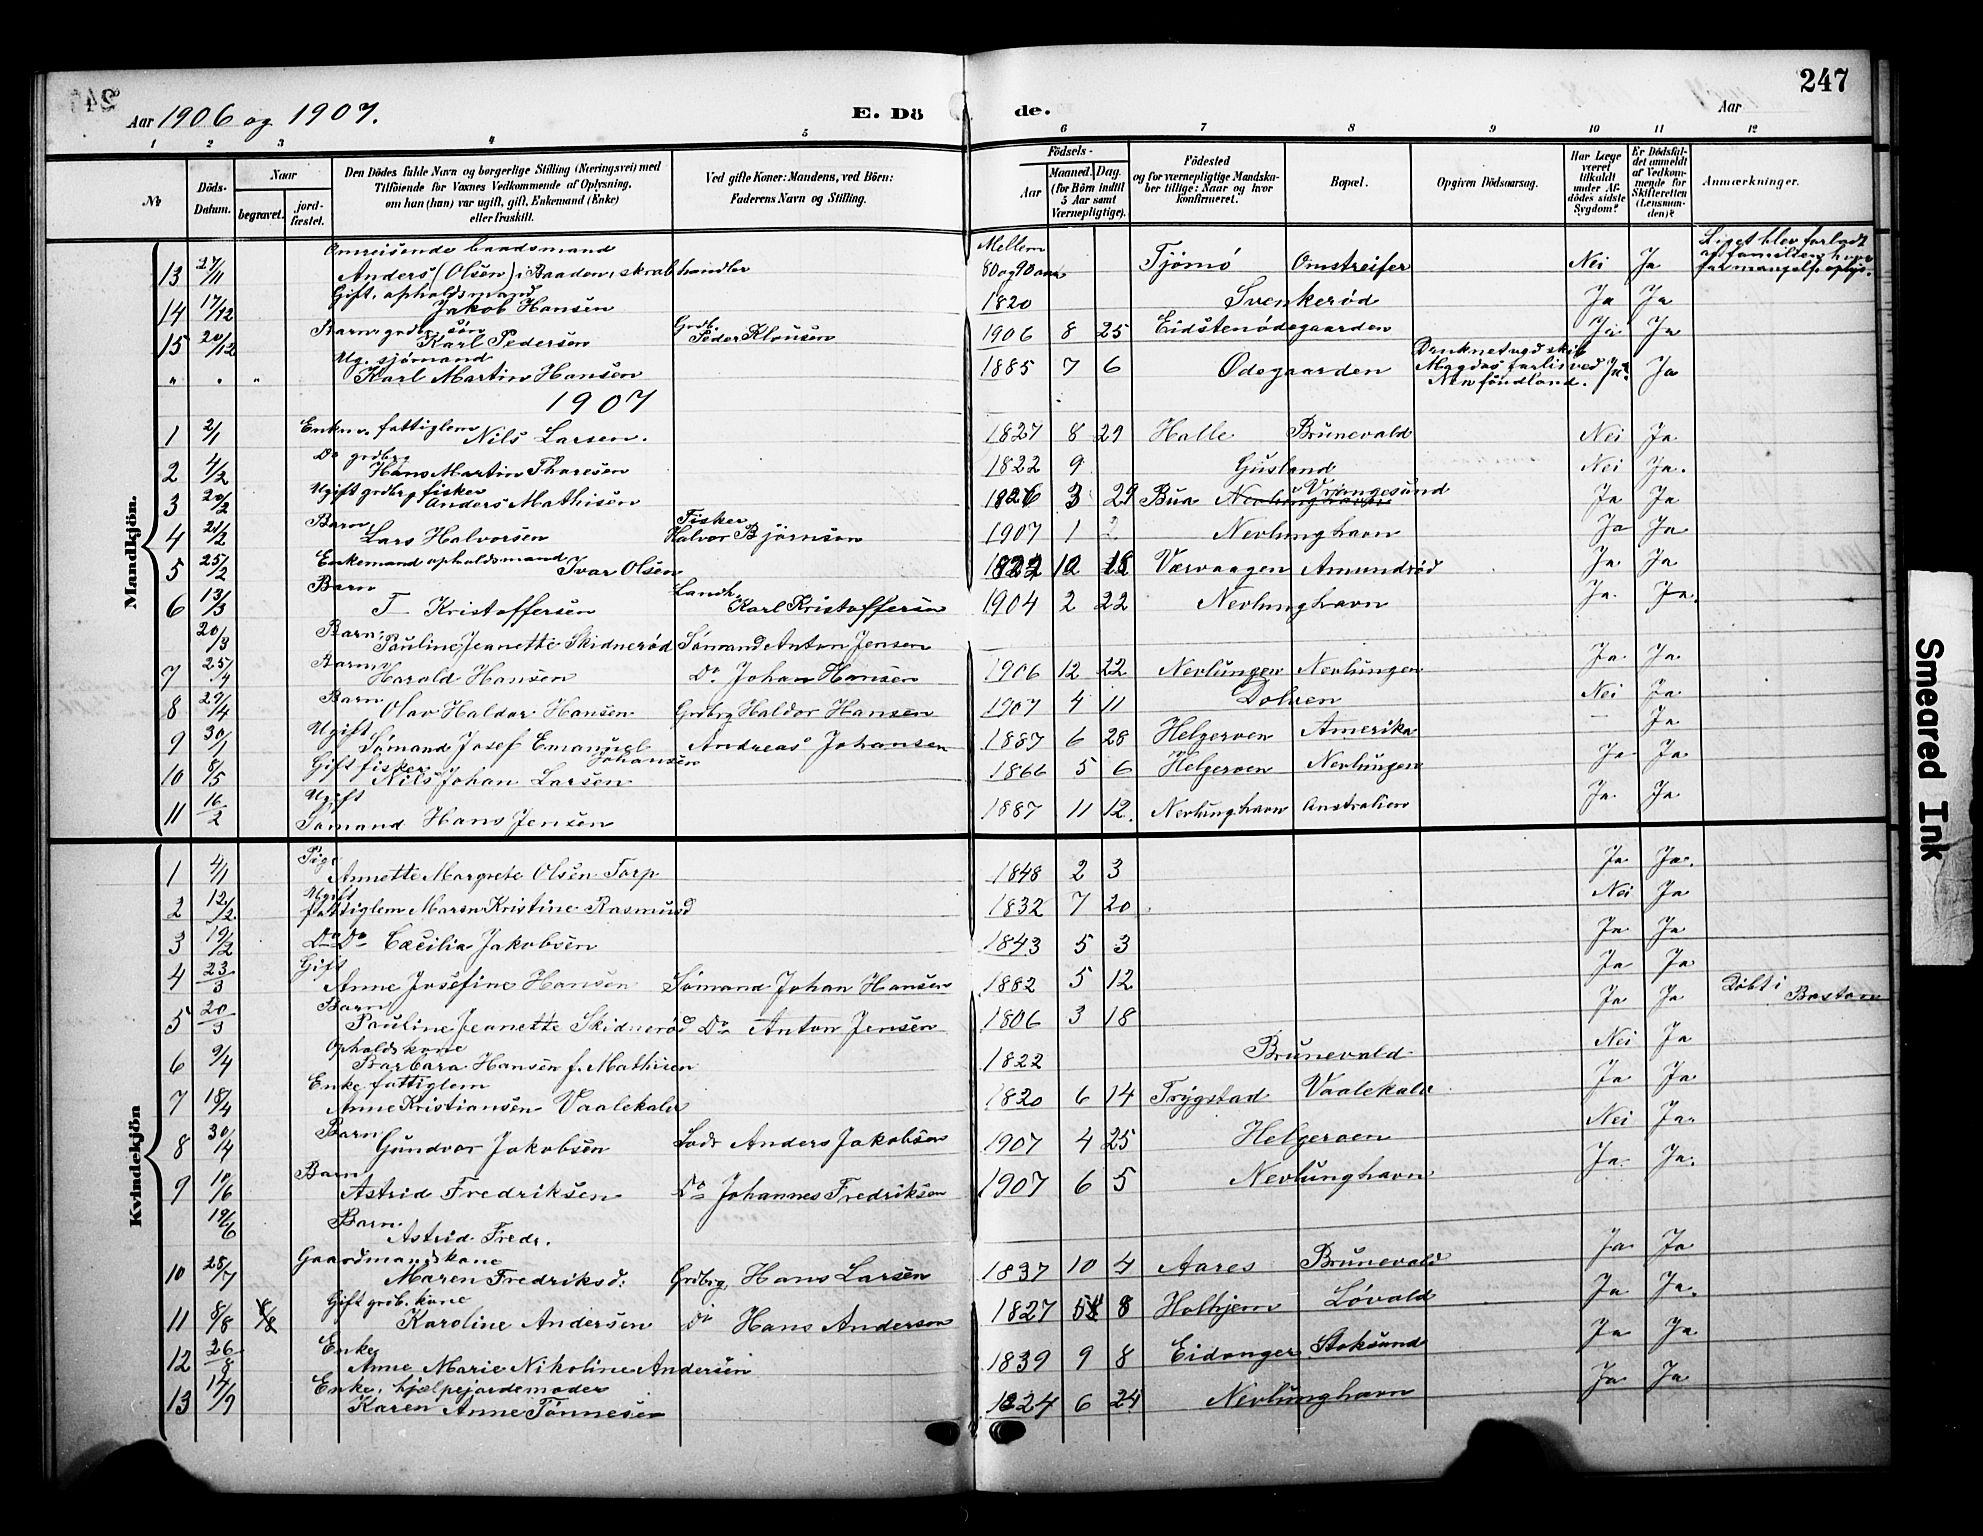 247
Aar 1906 og 1907.
E. Döde.
Aar
1 2 3 4 5 6 7 8 9 10 11 12
No
Döds-Datum.
Naar
begravet.
jord-fæstet.
Den Dödes fulde Navn og borgerlige Stilling (Næringsvei) med Tilföiende for Voxnes Vedkommende af Oplysning, om han (hun) var ugift, gift, Enkemand (Enke) eller fraskilt.
Ved gifte Koner: Mandens, ved Börn: Faderens Navn og Stilling.
Födsels-
Aar
Maaned. Dag. (for Börn indtil 5 Aar samt Værnepligtige).
Födested og for værnepligtige Mandska-ber tillige: Naar og hvor konfirmeret.
Bopæl.
Opgiven Dödsaarsag.
Har Læge været tilkaldt under Af-dödes sidste Sygdom?
Er Dödsfal-det anmeldt af Vedkom-mende for Skifteretten (Lensman-den)?
Anmærkninger.
Mandkjön.
13 27/11 Omreisende baadsmand Anders (Olsen) i Baaden, skrabhandler Mellem 80 og 90 aar Tjömö Omstreifer Nei Ja Liget blev forladt af familien, hvor for mangelf. oplys.
14 17/12 Gift, opholdsmand Jakob Hansen 1820 Svenkeröd Ja Ja
15 20/12 Barn, grdbr. sön Karl Pedersen Grdb. Peder Klausen 1906 8 25 Eidstenödegaarden Ja Ja
" " " Ug. sjömand Karl Martin Hansen 1885 7 6 Ödegaarden Druknet ved skib Magdas forlis ved Newfoundland. Ja? Ja
1907
1 2/1 Enkem. fattiglem Nils Larsen. 1827 8 29 Halle Brunevald Nei Ja
2 4/2 Do grdbrg Hans Martin Thoresen 1822 9 Gusland Nei Ja.
3 20/2 Ugift grdbrg fisker Anders Mathisen 1826 3 29 Bua Nevlunghavn Vrangesund Ja Ja
4 21/2 Barn Lars Halvorsen Fisker Halvor Björnson 1907 1 2 Nevlunghavn Ja Ja
5 25/2 Enkemand opholdsmand Ivar Olsen 1822 12 18 Værvaagen Amundröd Ja Ja
6 13/3 Barn T Kristoffersen Landh. Karl Kristoffersen 1904 2 22 Nevlunghavn Ja. Ja.
20/3 Barn, Pauline Jeanette Skidneröd Sömand Anton Jensen
7 25/4 Barn Harald Hansen Do. Johan Hansen 1906 12 22 Nevlungen Nevlungen Ja Ja
8 29/4 Barn Olav Haldor Hansen Grdbrg Haldor Hansen 1907 4 11 Dolven Nei Ja
9 30/1 Ugift Sömand Josef Emanuel Johansen Andreas Johansen 1887 6 28 Helgeroen Amerika — Ja
10 8/5 Gift fisker Nils Johan Larsen 1866 5 6 Helgeroen Nevlungen Ja Ja
11 16/2 Ugift Sömand Hans Jensen 1887 11 12. Nevlunghavn Australien Ja Ja
Kvindekjön
1 4/1 Pige Annette Margrete Olsen Torp 1848 2 3 Ja Ja.
2 12/2 Ugift fattiglem Maren Kristine Rasmusd 1832 7 20 Nei Ja
3 19/2 Do Do Cæcilia Jakobsen 1843 5 3 Ja Ja
4 23/3 Gift Anne Josefine Hansen Sömand Johan Hansen 1882 5 12 Ja Ja
5 20/3 Barn Pauline Jeanette Skidneröd Do Anton Jensen 1806 3 18 Ja Ja Döbt i Boston
6 9/4 Opholdskone Barbara Hansen f. Mathisen 1822 Brunevald Nei Ja
7 18/4 Enke fattiglem Anne Kristiansen Vaalekald 1820 6 14 Trygstad Vaalekald Ja Ja
8 30/4 Barn Gundvor Jakobsen Lods Anders Jakobsen 1907 4 25 Helgeroen Nei Ja.
9 10/6 Barn Astrid Fredriksen Do Johannes Fredriksen 1907 6 5 Nevlunghavn Ja Ja.
19/6 Barn Astrid Fredr.
10 28/7 Gaardmandskone Maren Fredriksd: Grdbrg. Hans Larsen 1837 10 4 Aares Brunevald Ja Ja
11 8/8 8/8 Gift grdb. kone Karoline Andersen do Hans Anderson 1827 5 8 Holhjem Lövald Ja Ja.
12 26/8 Enke Anne Marie Nikoline Andersen 1839 9 8 Eidanger Stoksund Ja Ja
13 17/9 Enke, hjælpejordemoder Karen Anne Tönnesen 1824 6 24 Nevlunghavn Ja Ja
Smeared Ink